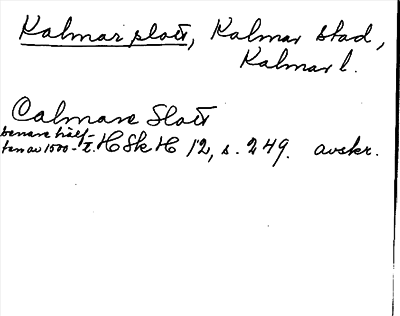 Kalmar slott, Kalmar stad,
Kalmar l.
Calmare Slott
senare hälf-
ten av 1500-t. HSkH 12, s. 249. avskr.